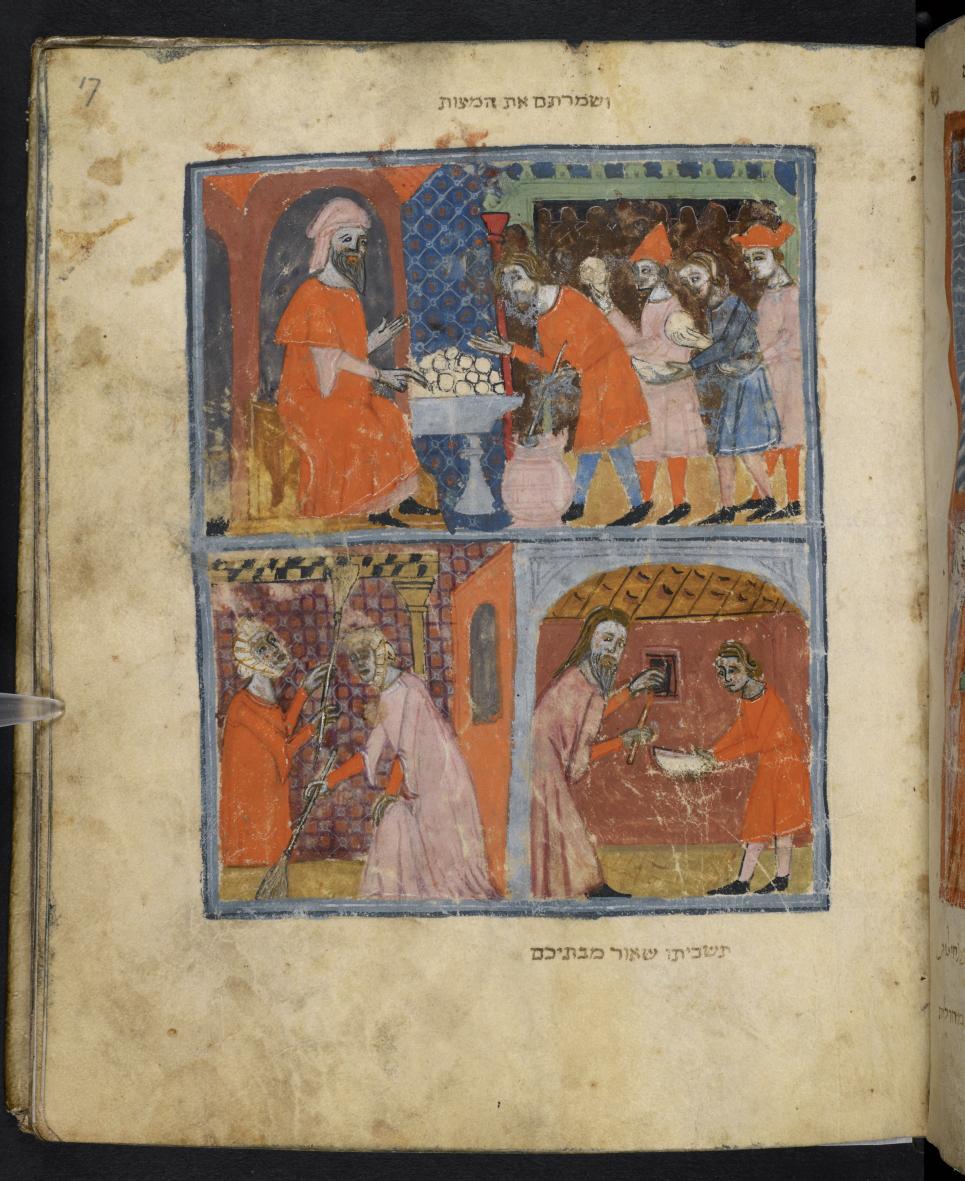 17
ושמרתם את המצות
תשביתו שאור מבתיכם